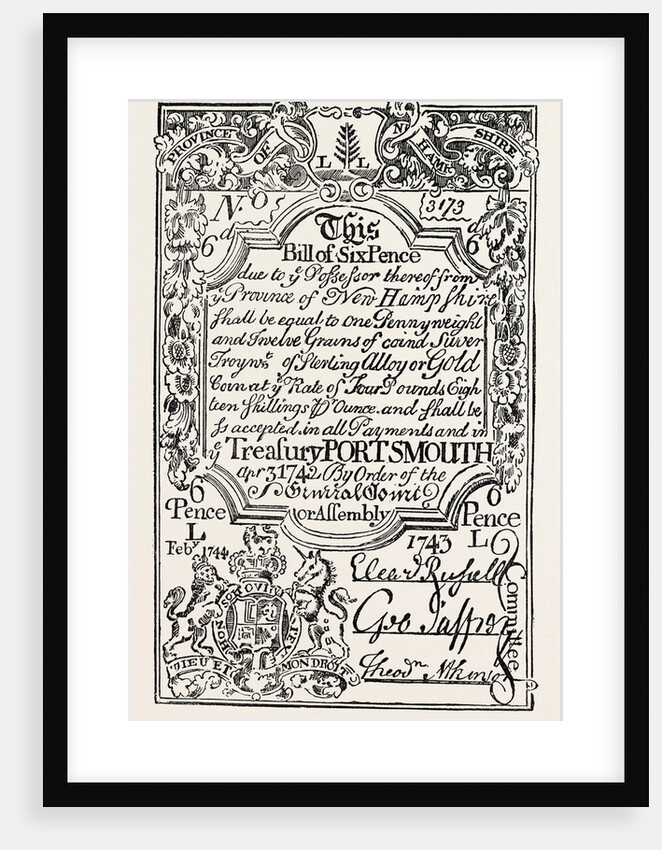 PROVINCE OF NEW HAMP SHIRE
L L
No 3173
6d 6d
This
Bill of Six Pence
due to ye Possessor thereof from
ye Province of New Hampshire
shall be equal to one Pennyweight
and Twelve Grains of coind Silver
Troy wt. of Sterling Alloy or Gold
Coin at ye Rate of Four Pounds Eigh
teen Shillings ⅌ Ounce. and shall be
so accepted in all Payments and in
ye Treasury PORTSMOUTH
apr 3 1742 By Order of the
General Court
or Assembly
6 Pence 6 Pence
L L
Feby. 1744 1743
HONI SOIT QUI MAL Y
DIEU ET MON DROIT
Elear. Russell
Geo Jaffrey
Theodre Atkinson
Committee